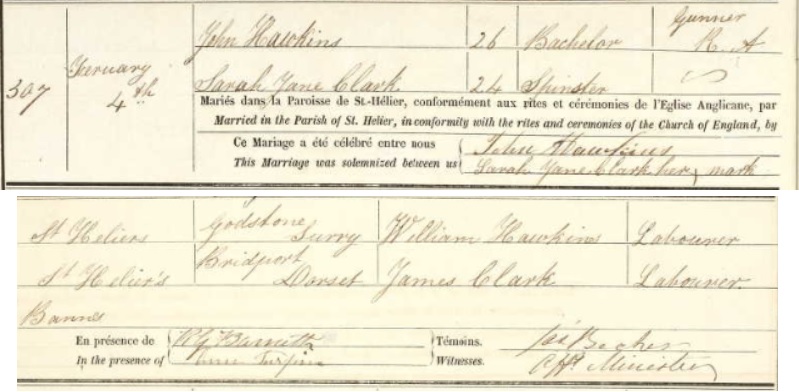 Gunner
John Hawkins 26 Bachelor R. A
307 February 4th
Sarah Jane Clark 24 Spinster
Mariés dans la Paroisse de St-Hélier, conformément aux rites et cérémonies de l'Eglise Anglicane, par
Married in the Parish of St. Helier, in conformity with the rites and ceremonies of the Church of England, by
Ce Mariage a été célébré entre nous John Hawkins
This Marriage was solemnized between us Sarah Jane Clark her mark
St Heliers Godstone Surry William Hawkins Labourer
St Helier's Bridport Dorset James Clark Labourer.
Banns
En présence de Témoins.
In the presence of Witnesses. Minister